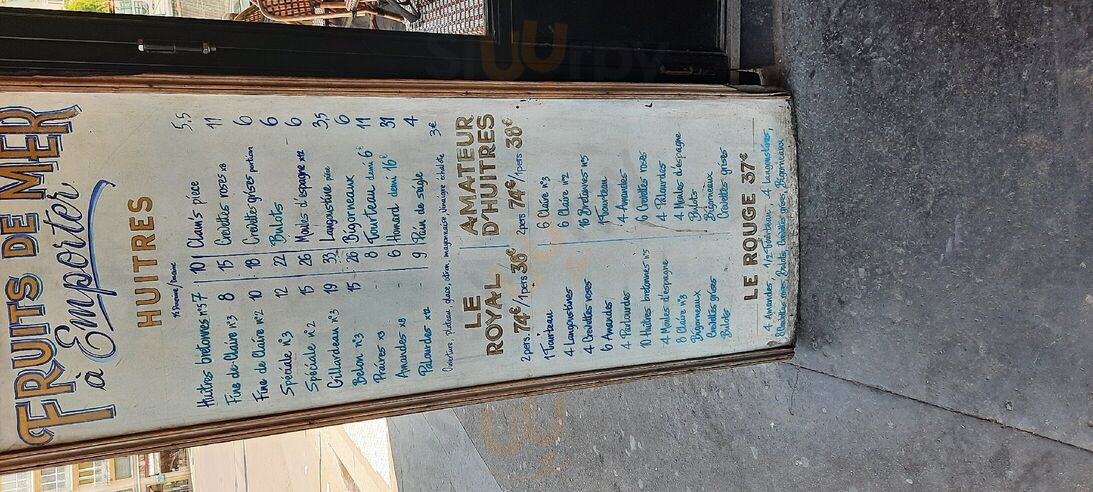 FRUITS DE MER
à Emporter
HUITRES
Huîtres bretonnes n°5 7 10 Clams pièce 5,5
Fine de Claire n°3 8 15 Crevettes roses x8 11
Fine de Claire n°2 10 18 Crevettes grises portion 6
Spéciale n°3 12 22 Bulots 6
Spéciale n°2 15 26 Moules d'espagne x12 6
Gillardeau n°3 19 33 Langoustine pièce 3,5
Belon n°3 15 26 Bigorneaux 6
Praires x3 8 Tourteau demi 6€ 11
Amandes x8 6 Homard demi 16€ 31
Palourdes x12 9 Pain de seigle 4
Ouverture, plateau, glace, citron, mayonnaise, vinaigre échalote 3€
LE ROYAL
2pers. 74€/1pers 38€
1 Tourteau
4 Langoustines
4 Crevettes roses
6 Amandes
4 Palourdes
10 Huîtres bretonnes n°5
4 Moules d'espagne
8 Claire n°3
Bigorneaux
Crevettes grises
Bulots
AMATEUR
D'HUITRES
2pers 74€/1pers 38€
6 Claire n°3
6 Claire n°2
16 Bretonnes n°5
1 Tourteau
4 Amandes
6 Crevettes roses
4 Palourdes
4 Moules d'espagne
Bulots
Bigorneaux
Crevettes grises
LE ROUGE 37€
4 Amandes, 1/2 Tourteau, 4 Langoustines,
Crevettes roses, Bulots, Crevettes grises, Bigorneaux